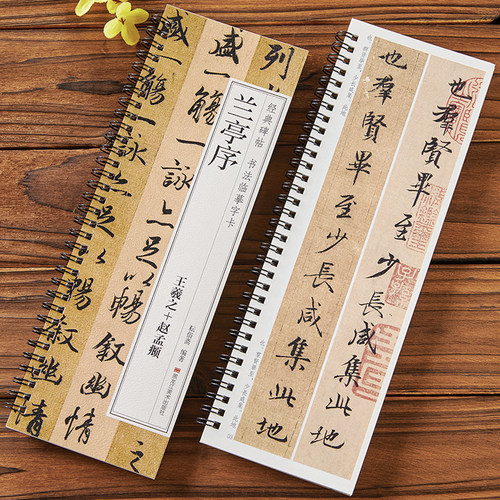 经典碑帖 书法临摹字卡
兰亭序
王羲之+赵孟頫
编著
黑龙江美术出版社
列
之
盛一觴一詠亦足以暢叙幽情
盛一觴一詠亦足以暢叙幽情
也羣賢畢至少長咸集此地
也羣賢畢至少長咸集此地
也。群贤毕至，少长咸集。此地